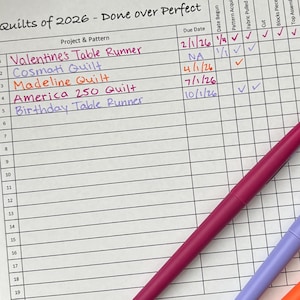 Quilts of 2026 - Done over Perfect
Project & Pattern Due Date Date Begun Pattern Acquired Fabric Pulled Cut
Valentine's Table Runner 2/1/26 1/8 ✓ ✓ ✓ ✓
Cosmati Quilt NA 1/1 ✓ ✓
Madeline Quilt 4/1/26 ✓
America 250 Quilt 7/1/26
Birthday Table Runner 10/1/26 ✓ ✓
5
6
7
8
9
10
11
12
13
14
15
16
17
18
19